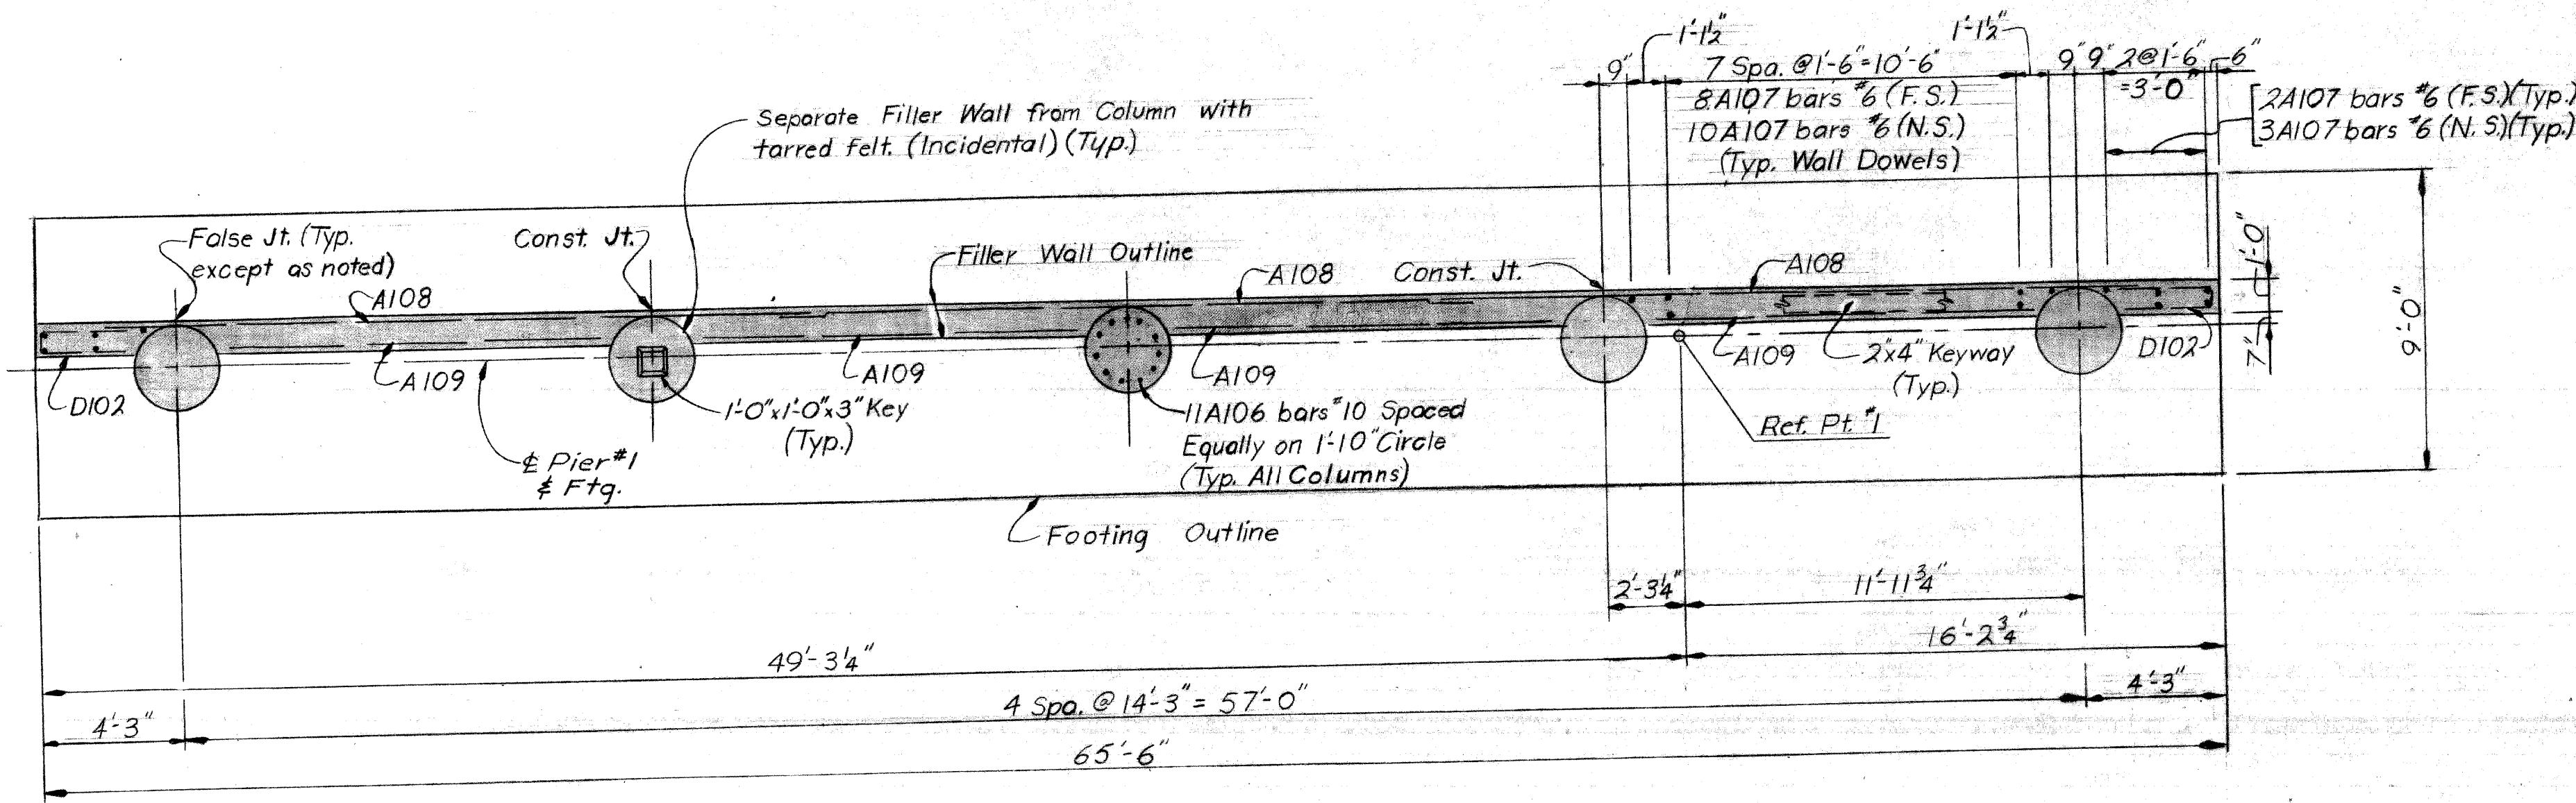 1'-1½"
1'-1½"
9" 7 Spa. @1'-6"=10'-6" 9" 9" 2@1'-6" 6"
=3'-0"
8A107 bars #6 (F.S.)
10A107 bars #6 (N.S.)
(Typ. Wall Dowels)
2A107 bars #6 (F.S.)(Typ.)
3A107 bars #6 (N.S.)(Typ.)
Separate Filler Wall from Column with
tarred felt. (Incidental) (Typ.)
False Jt. (Typ.
except as noted)
Const. Jt.
Filler Wall Outline
A108
A108
Const. Jt.
A108
1'-0"
7"
9'-0"
D102
A109
A109
A109
A109
2"x4" Keyway
(Typ.)
D102
1'-0"x1'-0"x3" Key
(Typ.)
11A106 bars #10 Spaced
Equally on 1'-10" Circle
(Typ. All Columns)
Ref. Pt. #1
℄ Pier #1
& Ftg.
Footing Outline
2'-3¼"
11'-11¾"
49'-3¼"
16'-2¾"
4'-3"
4 Spa. @ 14'-3" = 57'-0"
4'-3"
65'-6"